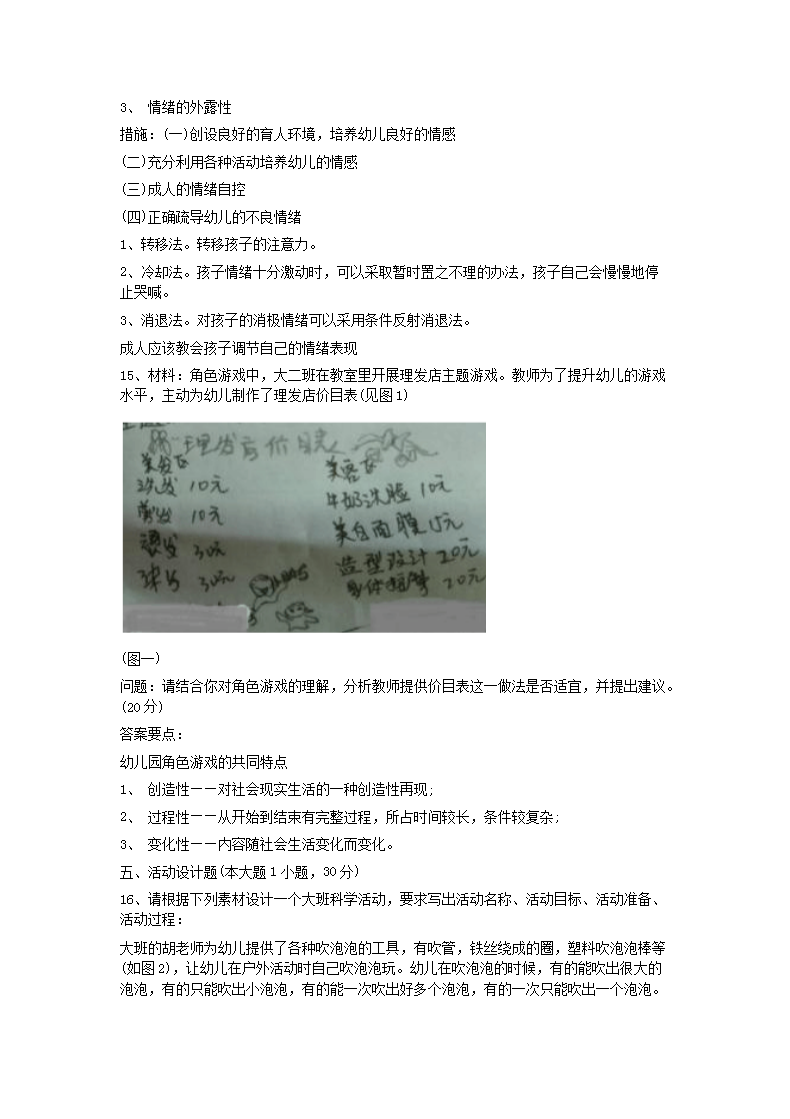 3、 情绪的外露性
措施：(一)创设良好的育人环境，培养幼儿良好的情感
(二)充分利用各种活动培养幼儿的情感
(三)成人的情绪自控
(四)正确疏导幼儿的不良情绪
1、转移法。转移孩子的注意力。
2、冷却法。孩子情绪十分激动时，可以采取暂时置之不理的办法，孩子自己会慢慢地停
止哭喊。
3、消退法。对孩子的消极情绪可以采用条件反射消退法。
成人应该教会孩子调节自己的情绪表现
15、材料：角色游戏中，大二班在教室里开展理发店主题游戏。教师为了提升幼儿的游戏
水平，主动为幼儿制作了理发店价目表(见图1)
理发店价目表
美发区
洗发 10元
剪发 10元
烫发 30元
染发 30元
美容区
牛奶洗脸 10元
美白面膜 15元
造型设计 20元
身体按摩 20元
(图一)
问题：请结合你对角色游戏的理解，分析教师提供价目表这一做法是否适宜，并提出建议。
(20分)
答案要点：
幼儿园角色游戏的共同特点
1、 创造性——对社会现实生活的一种创造性再现;
2、 过程性——从开始到结束有完整过程，所占时间较长，条件较复杂;
3、 变化性——内容随社会生活变化而变化。
五、活动设计题(本大题1小题，30分)
16、请根据下列素材设计一个大班科学活动，要求写出活动名称、活动目标、活动准备、
活动过程：
大班的胡老师为幼儿提供了各种吹泡泡的工具，有吹管，铁丝绕成的圈，塑料吹泡泡棒等
(如图2)，让幼儿在户外活动时自己吹泡泡玩。幼儿在吹泡泡的时候，有的能吹出很大的
泡泡，有的只能吹出小泡泡，有的能一次吹出好多个泡泡，有的一次只能吹出一个泡泡。